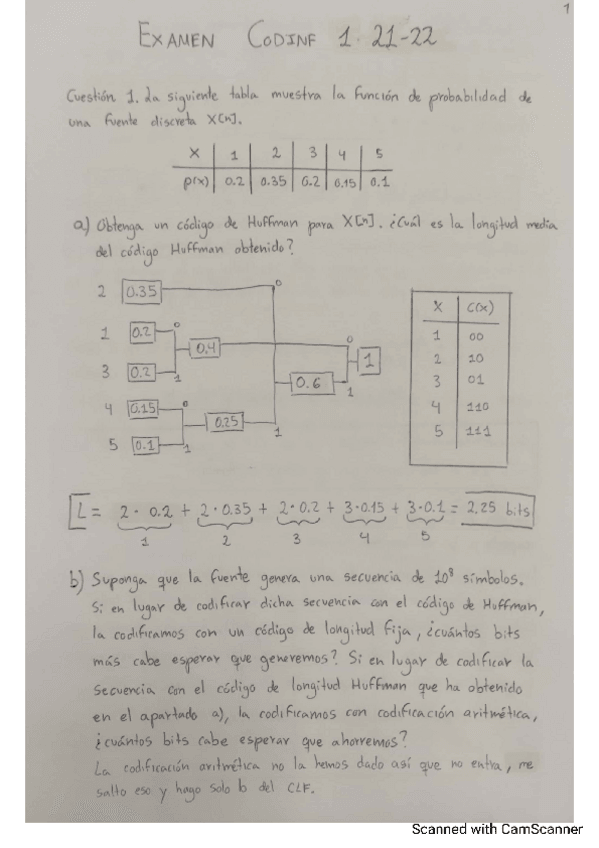 1
EXAMEN CODINF 1 21-22
Cuestión 1. La siguiente tabla muestra la función de probabilidad de
una fuente discreta X[n].
X 1 2 3 4 5
p(x) 0.2 0.35 0.2 0.15 0.1
a) Obtenga un código de Huffman para X[n]. ¿Cuál es la longitud media
del código Huffman obtenido?
2 0.35 0
1 0.2 0
0.4 0
3 0.2 1
1
0.6 1
4 0.15 0
0.25 1
5 0.1 1
X C(x)
1 00
2 10
3 01
4 110
5 111
L = 2·0.2 + 2·0.35 + 2·0.2 + 3·0.15 + 3·0.1 = 2,25 bits
1 2 3 4 5
b) Suponga que la fuente genera una secuencia de 10⁸ símbolos.
Si en lugar de codificar dicha secuencia con el código de Huffman,
la codificamos con un código de longitud fija, ¿cuántos bits
más cabe esperar que generemos? Si en lugar de codificar la
secuencia con el código de longitud Huffman que ha obtenido
en el apartado a), la codificamos con codificación aritmética,
¿cuántos bits cabe esperar que ahorremos?
La codificación aritmética no la hemos dado así que no entra, me
salto eso y hago solo lo del CLF.
Scanned with CamScanner